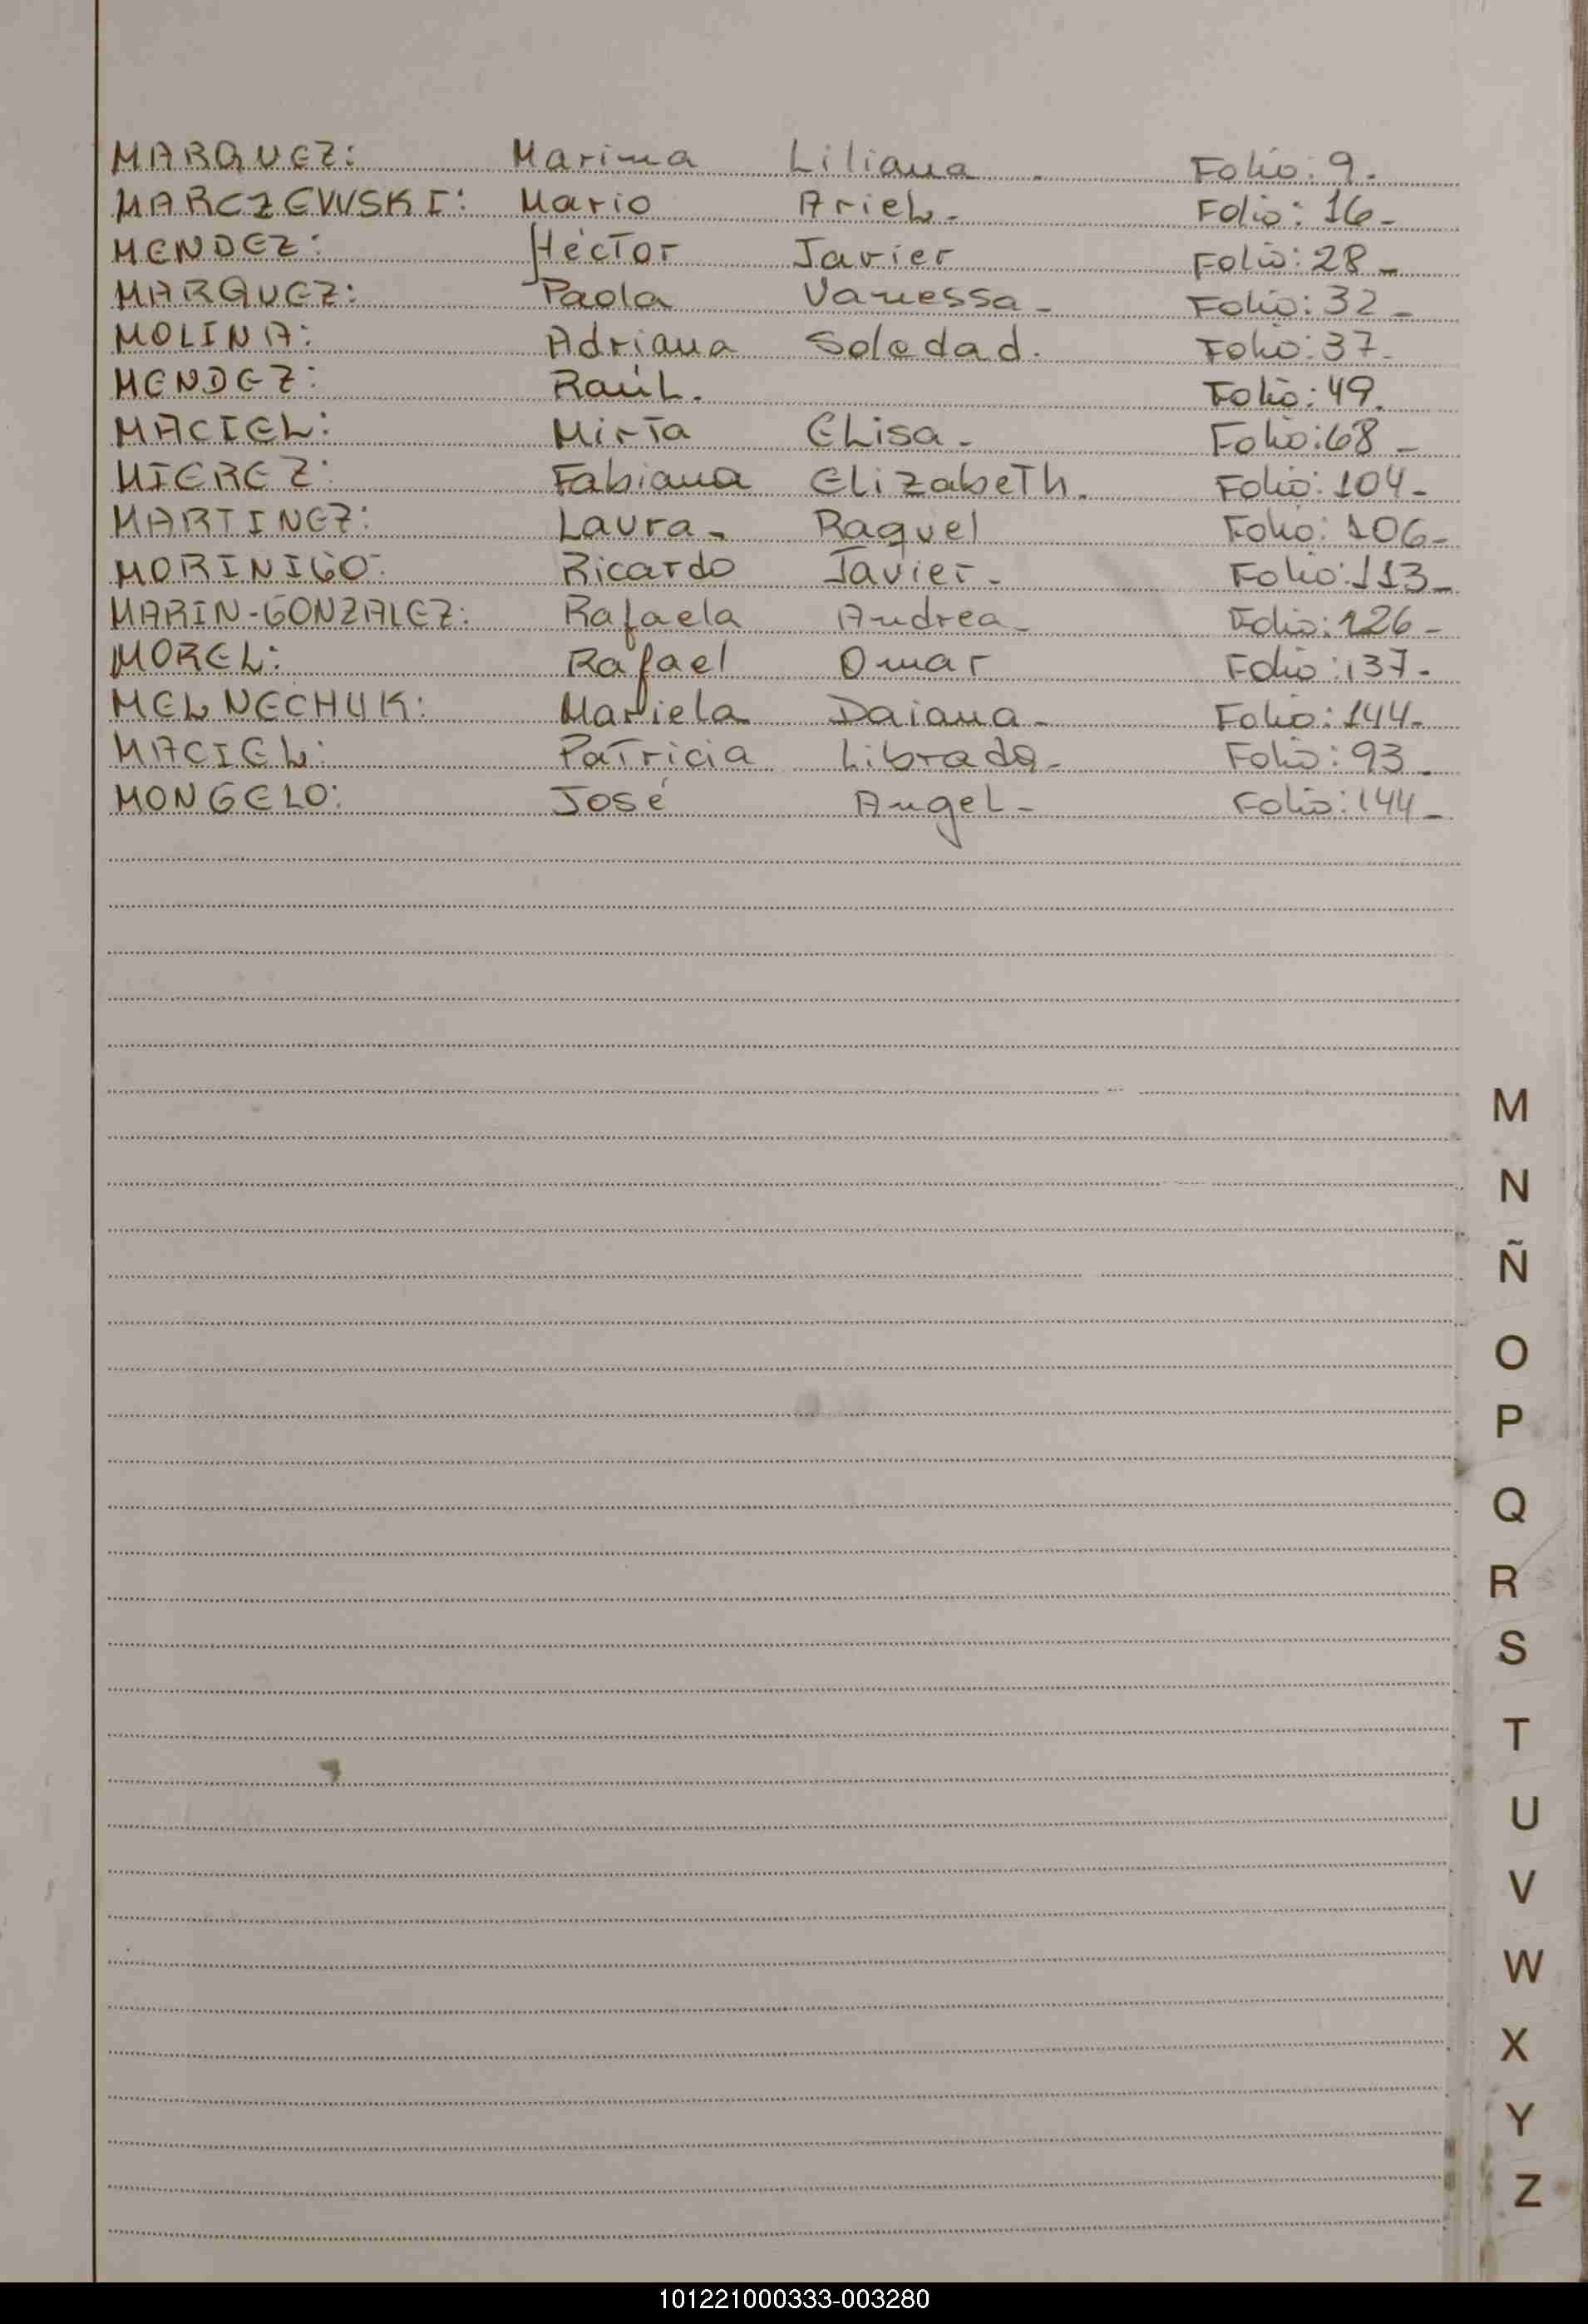 MARQUEZ: Marina Liliana . Folio: 9.
MARCZEWSKI: Mario Ariel - Folio: 16 -
MENDEZ: Héctor Javier Folio: 28 -
MARQUEZ: Paola Vanessa - Folio: 32 -
MOLINA: Adriana Soledad. Folio: 37 -
MENDEZ: Raúl. Folio: 49.
MACIEL: Mirta Elisa - Folio: 68 -
MIEREZ: Fabiana Elizabeth. Folio: 104 -
MARTINEZ: Laura - Raquel Folio: 106 -
MORINIGO: Ricardo Javier - Folio: 113 -
MARIN-GONZALEZ: Rafaela Andrea - Folio: 126 -
MOREL: Rafael Omar Folio: 137 -
MELNECHUK: Mariela Daiana - Folio: 144 -
MACIEL: Patricia Librada - Folio: 93 -
MONGELO: José Angel - Folio: 144 -
M
N
Ñ
O
P
Q
R
S
T
U
V
W
X
Y
Z
101221000333-003280